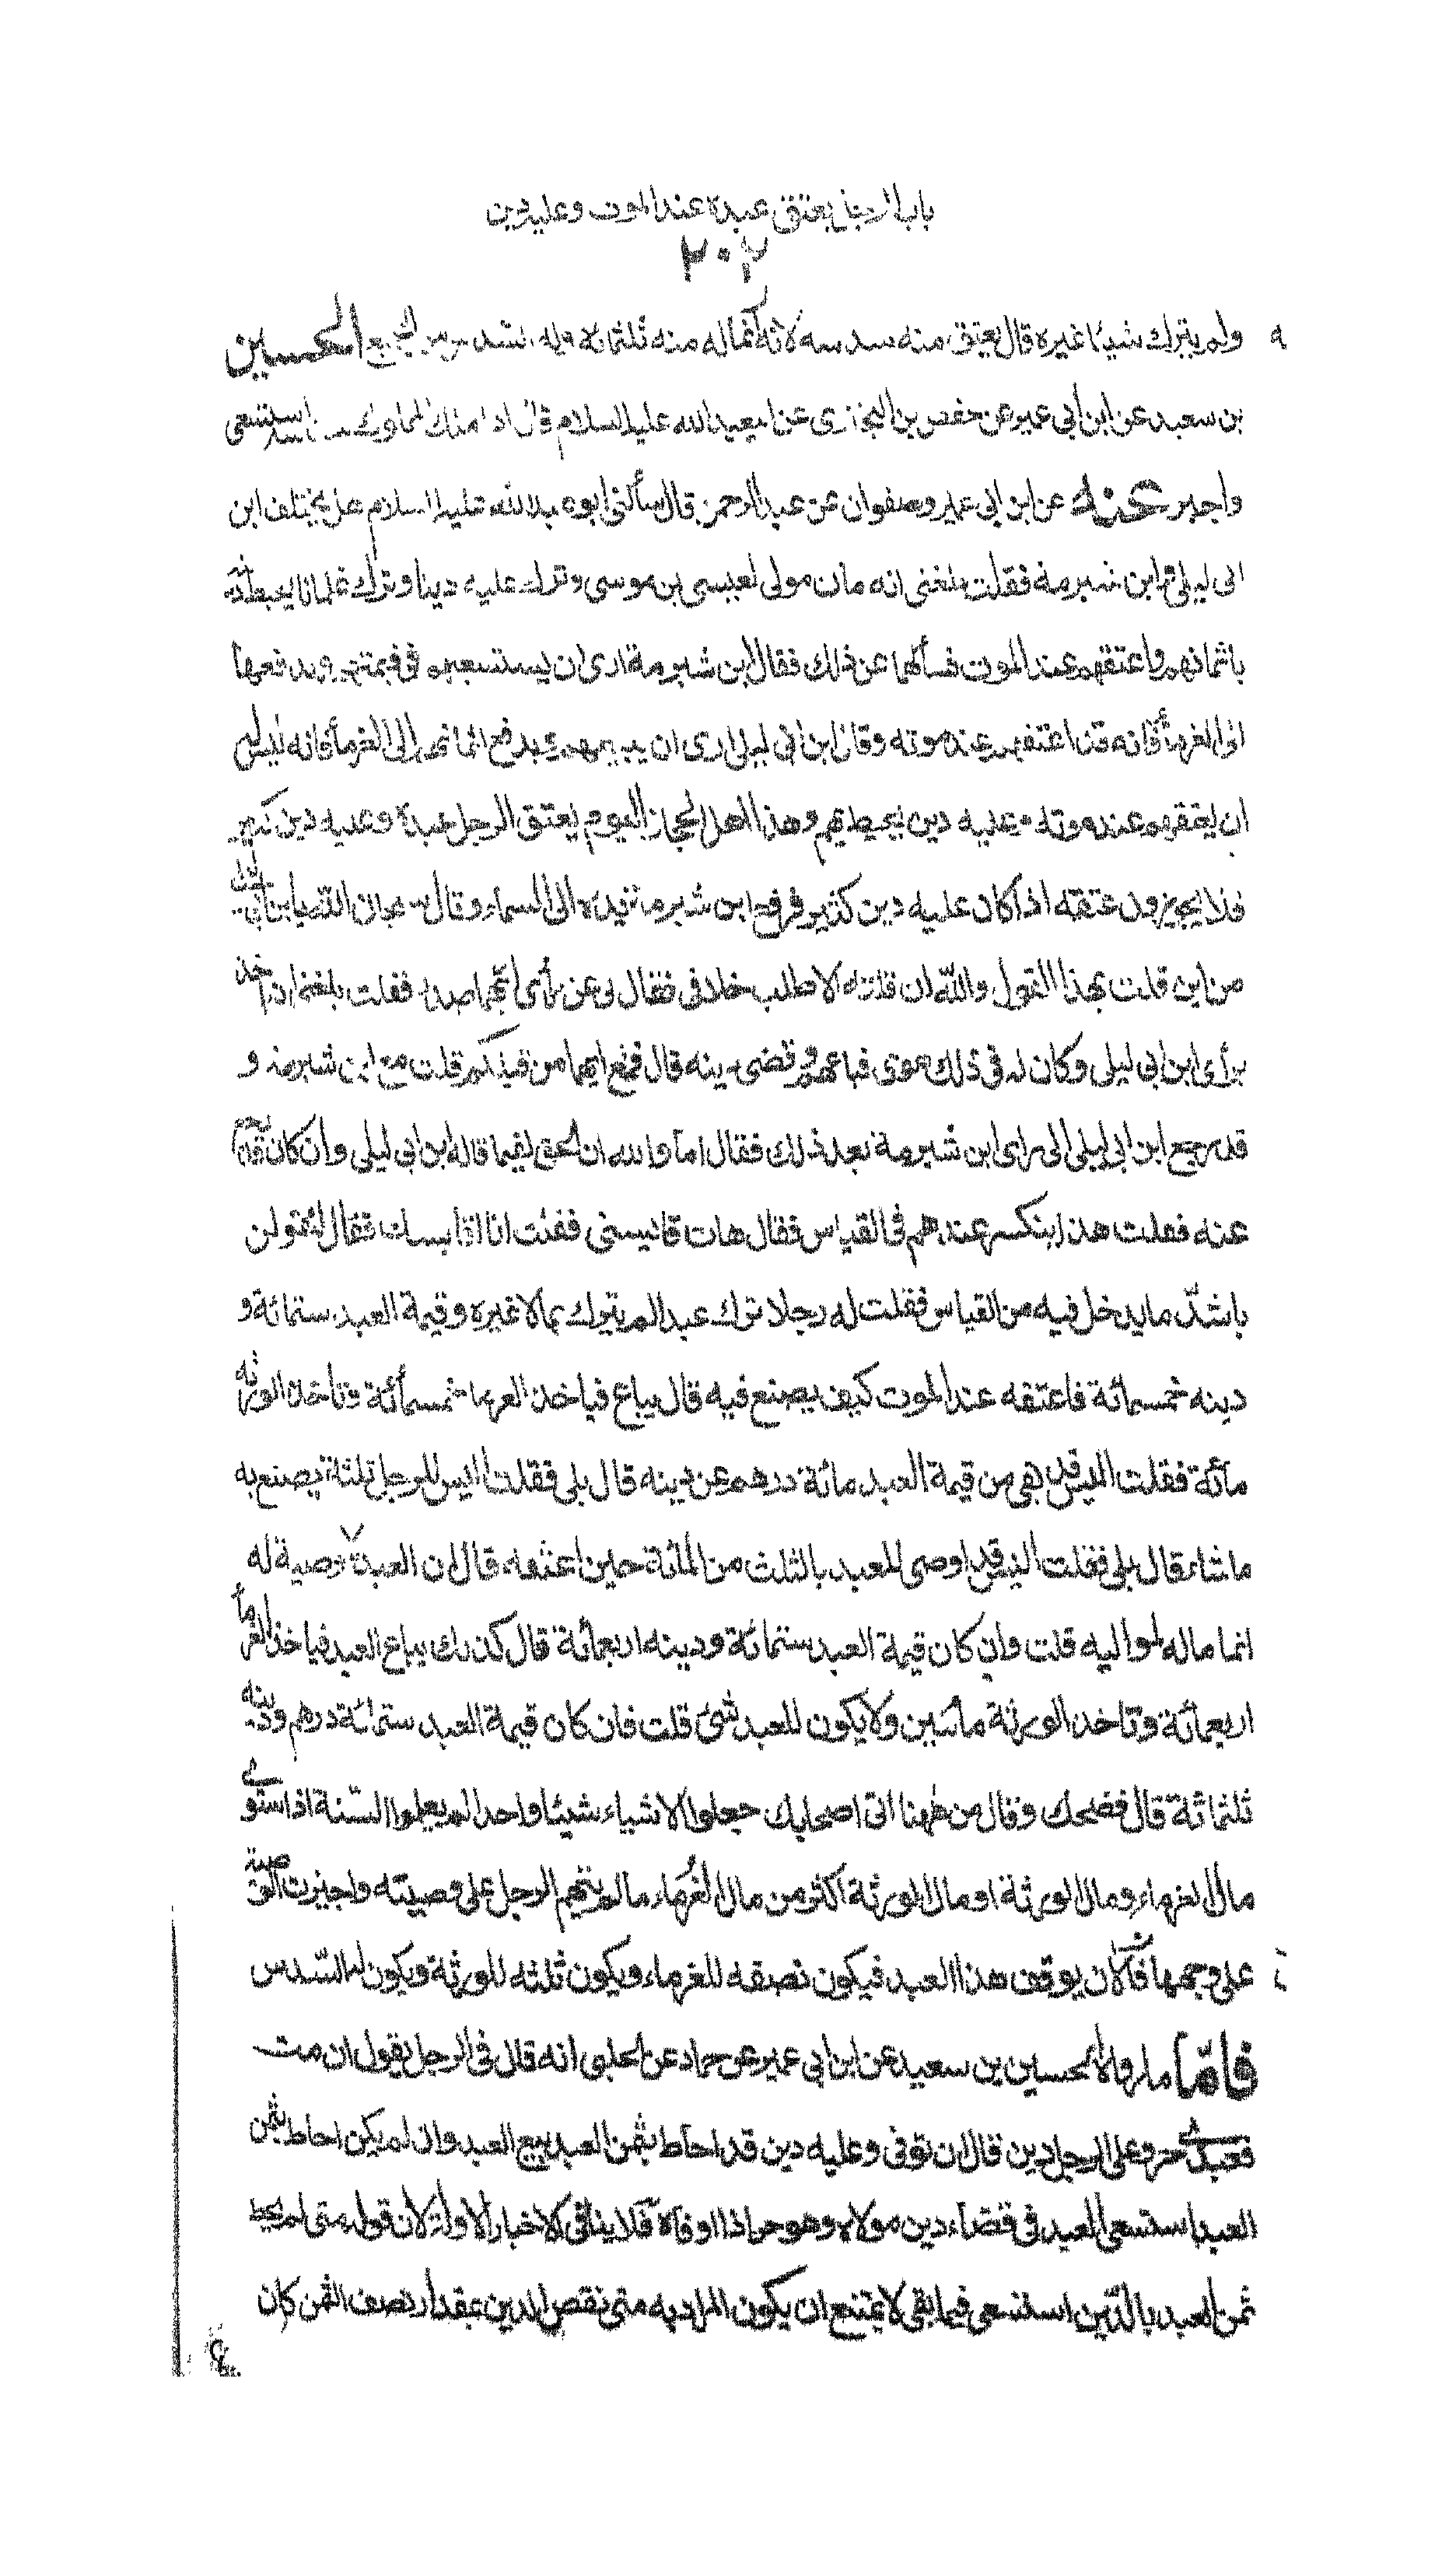 باب الرجل يعتق عبده عند الموت وعليه دين
٢٠٧
ولم يترك شيئا غيره قال يعتق منه سدسه لانه انما له منه ثلثمائة وله السدس من الجميع الحسين
بن سعيد عن ابن ابي عمير عن حفص بن البختري عن ابي عبد الله عليه السلام قال اذا ملك المملوك سدسه استسعى
واجبر عنه عن ابن ابي عمير وصفوان عن عبد الرحمن قال سألني ابو عبد الله عليه السلام هل يختلف ابن
ابي ليلى وابن شبرمة فقلت بلغني انه مات مولى لعيسى بن موسى وترك عليه دينا وترك غلمانا يحيط دينه
باثمانهم واعتقهم عند الموت فسألهما عن ذلك فقال ابن شبرمة ارى ان يستسعيهم في قيمتهم ويدفعها
الى الغرماء فانه قد اعتقهم عند موته وقال ابن ابي ليلى ارى ان يبيعهم ويدفع اثمانهم الى الغرماء فانه ليس له
ان يعتقهم عند موته وعليه دين يحيط بهم وهذا اهل الحجاز اليوم يعتق الرجل عبده وعليه دين كثير
فلا يجيزون عتقه اذا كان عليه دين كثير فرفع ابن شبرمة يده الى السماء وقال سبحان الله يا بن ابي ليلى
من اين قلت بهذا القول والله ان قلته الا طلب خلافي فقال لي عن رأي ايهما صدر فقلت بلغني انه اخذ
برأي ابن ابي ليلى وكان له في ذلك هوى فباعهم وقضى دينه قال فمع ايهما من قبلكم قلت مع ابن شبرمة و
قد رجع ابن ابي ليلى الى راى ابن شبرمة بعد ذلك فقال اما والله ان الحق لفيما قاله ابن ابي ليلى وان كان قد رجع
عنه فقلت هذا ينكسر عندهم في القياس فقال هات قايسني فقلت انا اقايسك فقال لتقولن
باشد ما يدخل فيه من القياس فقلت له رجلا ترك عبدا لم يترك مالا غيره وقيمة العبد ستمائة و
دينه خمسمائة فاعتقه عند الموت كيف يصنع فيه قال يباع فياخذ الغرماء خمسمائة وتاخذ الورثة
مائة فقلت اليس قد بقي من قيمة العبد مائة درهم عن دينه قال بلى فقلت اليس للرجل ثلثه يصنع به
ما شاء قال بلى فقلت اليس قد اوصى للعبد بالثلث من المائة حين اعتقه قال ان العبد لا وصية له
انما ماله لمواليه قلت وان كان قيمة العبد ستمائة ودينه اربعمائة قال كذلك يباع العبد فياخذ الغرماء
اربعمائة وتاخذ الورثة مأتين ولا يكون للعبد شئ قلت فان كان قيمة العبد ستمائة درهم ودينه
ثلثمائة قال فضحك وقال من ههنا اتى اصحابك جعلوا الاشياء شيئا واحدا لم يعلموا السنة اذا استوى
مال الغرماء ومال الورثة او مال الورثة اكثر من مال الغرماء ما لم يتهم الرجل على وصيته واجيزت الوصية
على وجهها فالآن يوقف هذا العبد فيكون نصفه للغرماء ويكون ثلثه للورثة ويكون له السدس
فاما ما رواه الحسين بن سعيد عن ابن ابي عمير عن حماد عن الحلبي انه قال في الرجل يقول ان مت
فعبدي حر وعلى الرجل دين قال ان توفى وعليه دين قد احاط بثمن العبد بيع العبد وان لم يكن احاط بثمن
العبد استسعى العبد في قضاء دين مولاه وهو حر اذا اوفاه فلا ينافي الاخبار الاولة لان قوله متى لم يحط
ثمن العبد بالدين استسعى فيما بقى لا يمتنع ان يكون المراد به متى نقص الدين بمقدار نصف الثمن كان